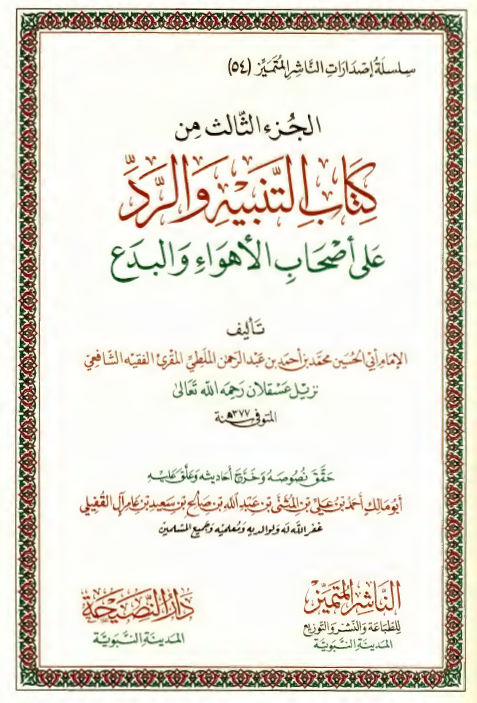 سِلسِلَةُ إصْدَارَاتِ النَّاشِرِ المُتَمَيِّز (٥٤)
الجُزء الثَّالث مِن
كِتَابِ التَّنبِيْهِ وَالرَّدِّ
عَلَى أَصْحَابِ الأَهوَاءِ وَالبِدَع
تَأليف
الإمَام أبي الحُسَين محمَّد بن أحمَد بن عَبد الرَّحمَن المَلَطِي المقرئ الفقيه الشَّافعي
نزيل عَسقَلان رَحِمَه الله تَعَالى
المتوفى سنة ٣٧٧هـ
حَقَّقَ نُصُوصَهُ وَخَرَّجَ أَحَادِيثه وَعَلَّقَ عَلَيْهِ
أبُو مَالِك أحمَد بن عَلِي بن المثنى بن عَبد الله بن صَالح بن سَعِيد بن عَامِر آل القُفَيلي
غفر الله له ولوالديه ومعلميه وجميع المسلمين
النَّاشِر المُتَمَيِّز
للطِّبَاعَة وَالنَّشْر وَالتَّوزِيع
المَدِينَة النَّبَوِيَّة
دَارُ النَّصِيحَة
المَدِينَة النَّبَوِيَّة